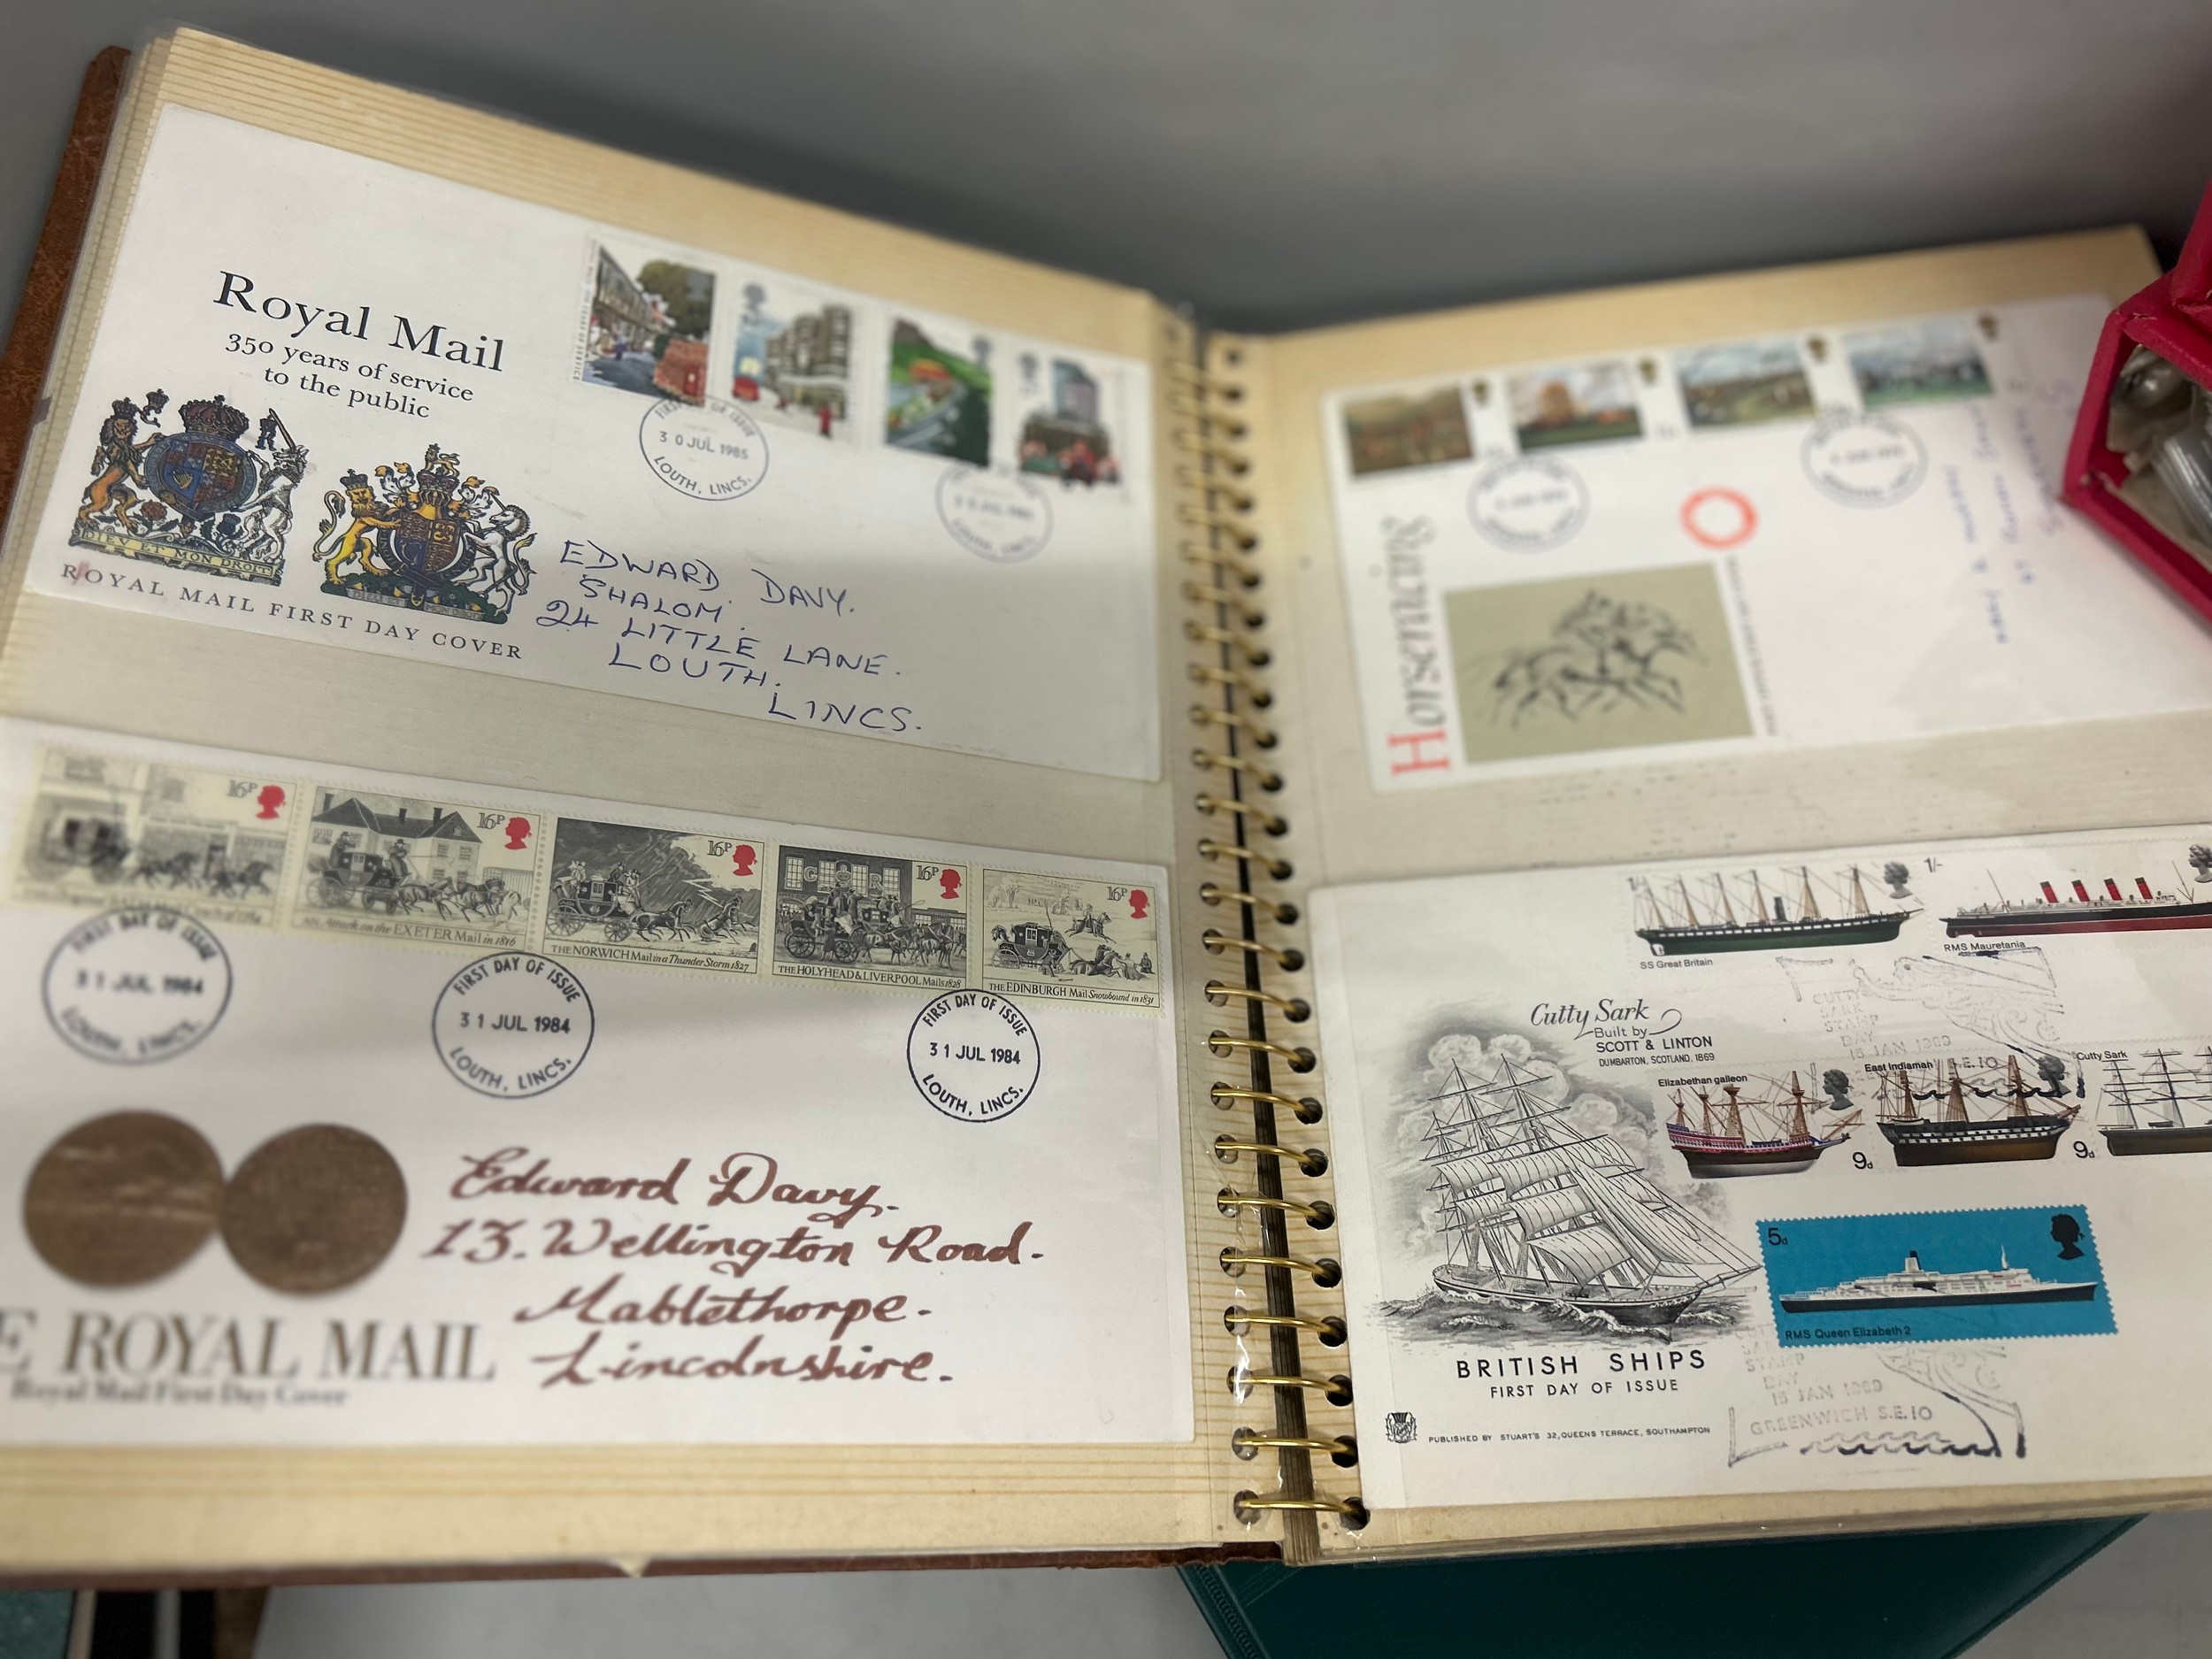 Royal Mail
350 years of service
to the public
DIEV ET MON DROIT
ROYAL MAIL FIRST DAY COVER
FIRST DAY OF ISSUE
30 JUL 1985
LOUTH, LINCS.
LOUTH, LINCS.
EDWARD DAVY.
SHALOM.
24 LITTLE LANE.
LOUTH.
LINCS.
16P
16P
An Attack on the EXETER Mail in 1816
16P
THE NORWICH Mail in a Thunder Storm 1827
16P
THE HOLYHEAD & LIVERPOOL Mails 1828
16P
THE EDINBURGH Mail Snowbound in 1831
FIRST DAY OF ISSUE
31 JUL 1984
LOUTH, LINCS.
FIRST DAY OF ISSUE
31 JUL 1984
LOUTH, LINCS.
FIRST DAY OF ISSUE
31 JUL 1984
LOUTH, LINCS.
Edward Davy.
13. Wellington Road.
Mablethorpe.
Lincolnshire.
E ROYAL MAIL
Royal Mail First Day Cover
Horseracing
1/-
SS Great Britain
1/-
RMS Mauretania
Cutty Sark
Built by
SCOTT & LINTON
DUMBARTON, SCOTLAND, 1869
CUTTY
SARK
STAMP
DAY
15 JAN 1969
S.E.10
Elizabethan galleon
9d
East Indiaman
9d
Cutty Sark
5d
RMS Queen Elizabeth 2
BRITISH SHIPS
FIRST DAY OF ISSUE
PUBLISHED BY STUART'S 32, QUEENS TERRACE, SOUTHAMPTON
STAMP
DAY
15 JAN 1969
GREENWICH S.E.10